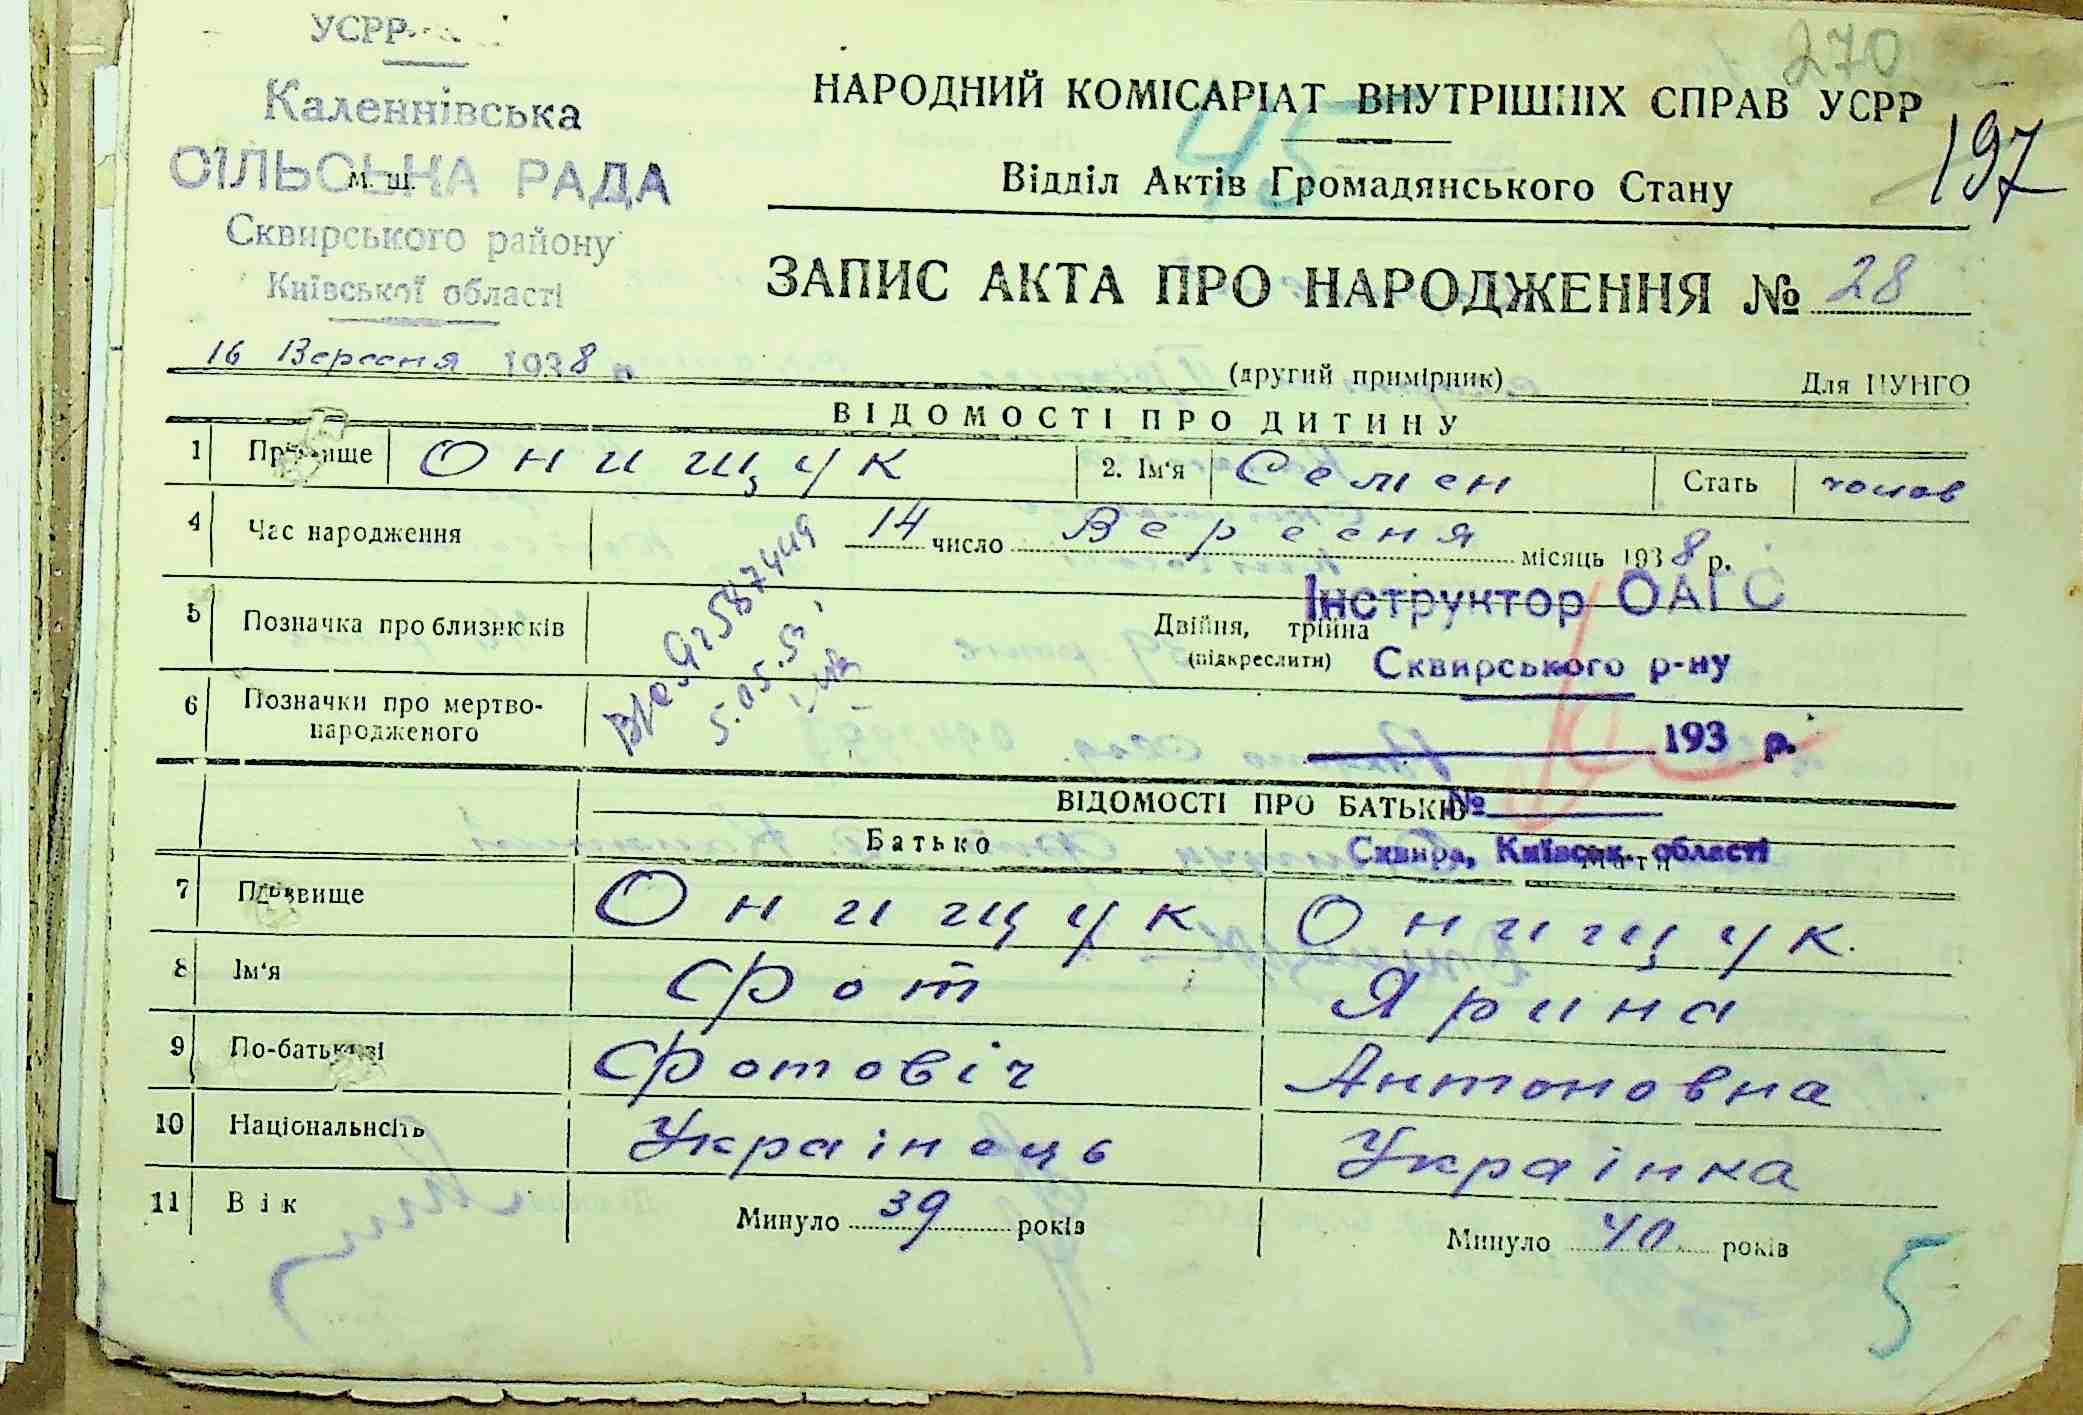 270
УСРР
Каленнівська
СІЛЬСЬКА РАДА
М. Ш.
Сквирського району
Київської області
НАРОДНИЙ КОМІСАРІАТ ВНУТРІШНІХ СПРАВ УСРР
45
197
Відділ Актів Громадянського Стану
ЗАПИС АКТА ПРО НАРОДЖЕННЯ № 28
16 Вересня 1938 р.
(другий примірник) Для ЦУНГО
ВІДОМОСТІ ПРО ДИТИНУ
1 Прізвище Онищук 2. Ім'я Семен Стать чолов
4 Час народження 14 число Вересня місяць 1938 р.
5 Позначка про близнюків Двійня, трійна
(підкреслити)
Інструктор ОАГС
Сквирського р-ну
6 Позначки про мертво-
народженого
193 р.
№
Сквира, Київськ. області
ВІДОМОСТІ ПРО БАТЬКІВ
Батько Мати
7 Прізвище Онищук Онищук
8 Ім'я Фрот Ярина
9 По-батькові Фротовіч Антоновна
10 Національність Українець Українка
11 Вік Минуло 39 років Минуло 40 років
5